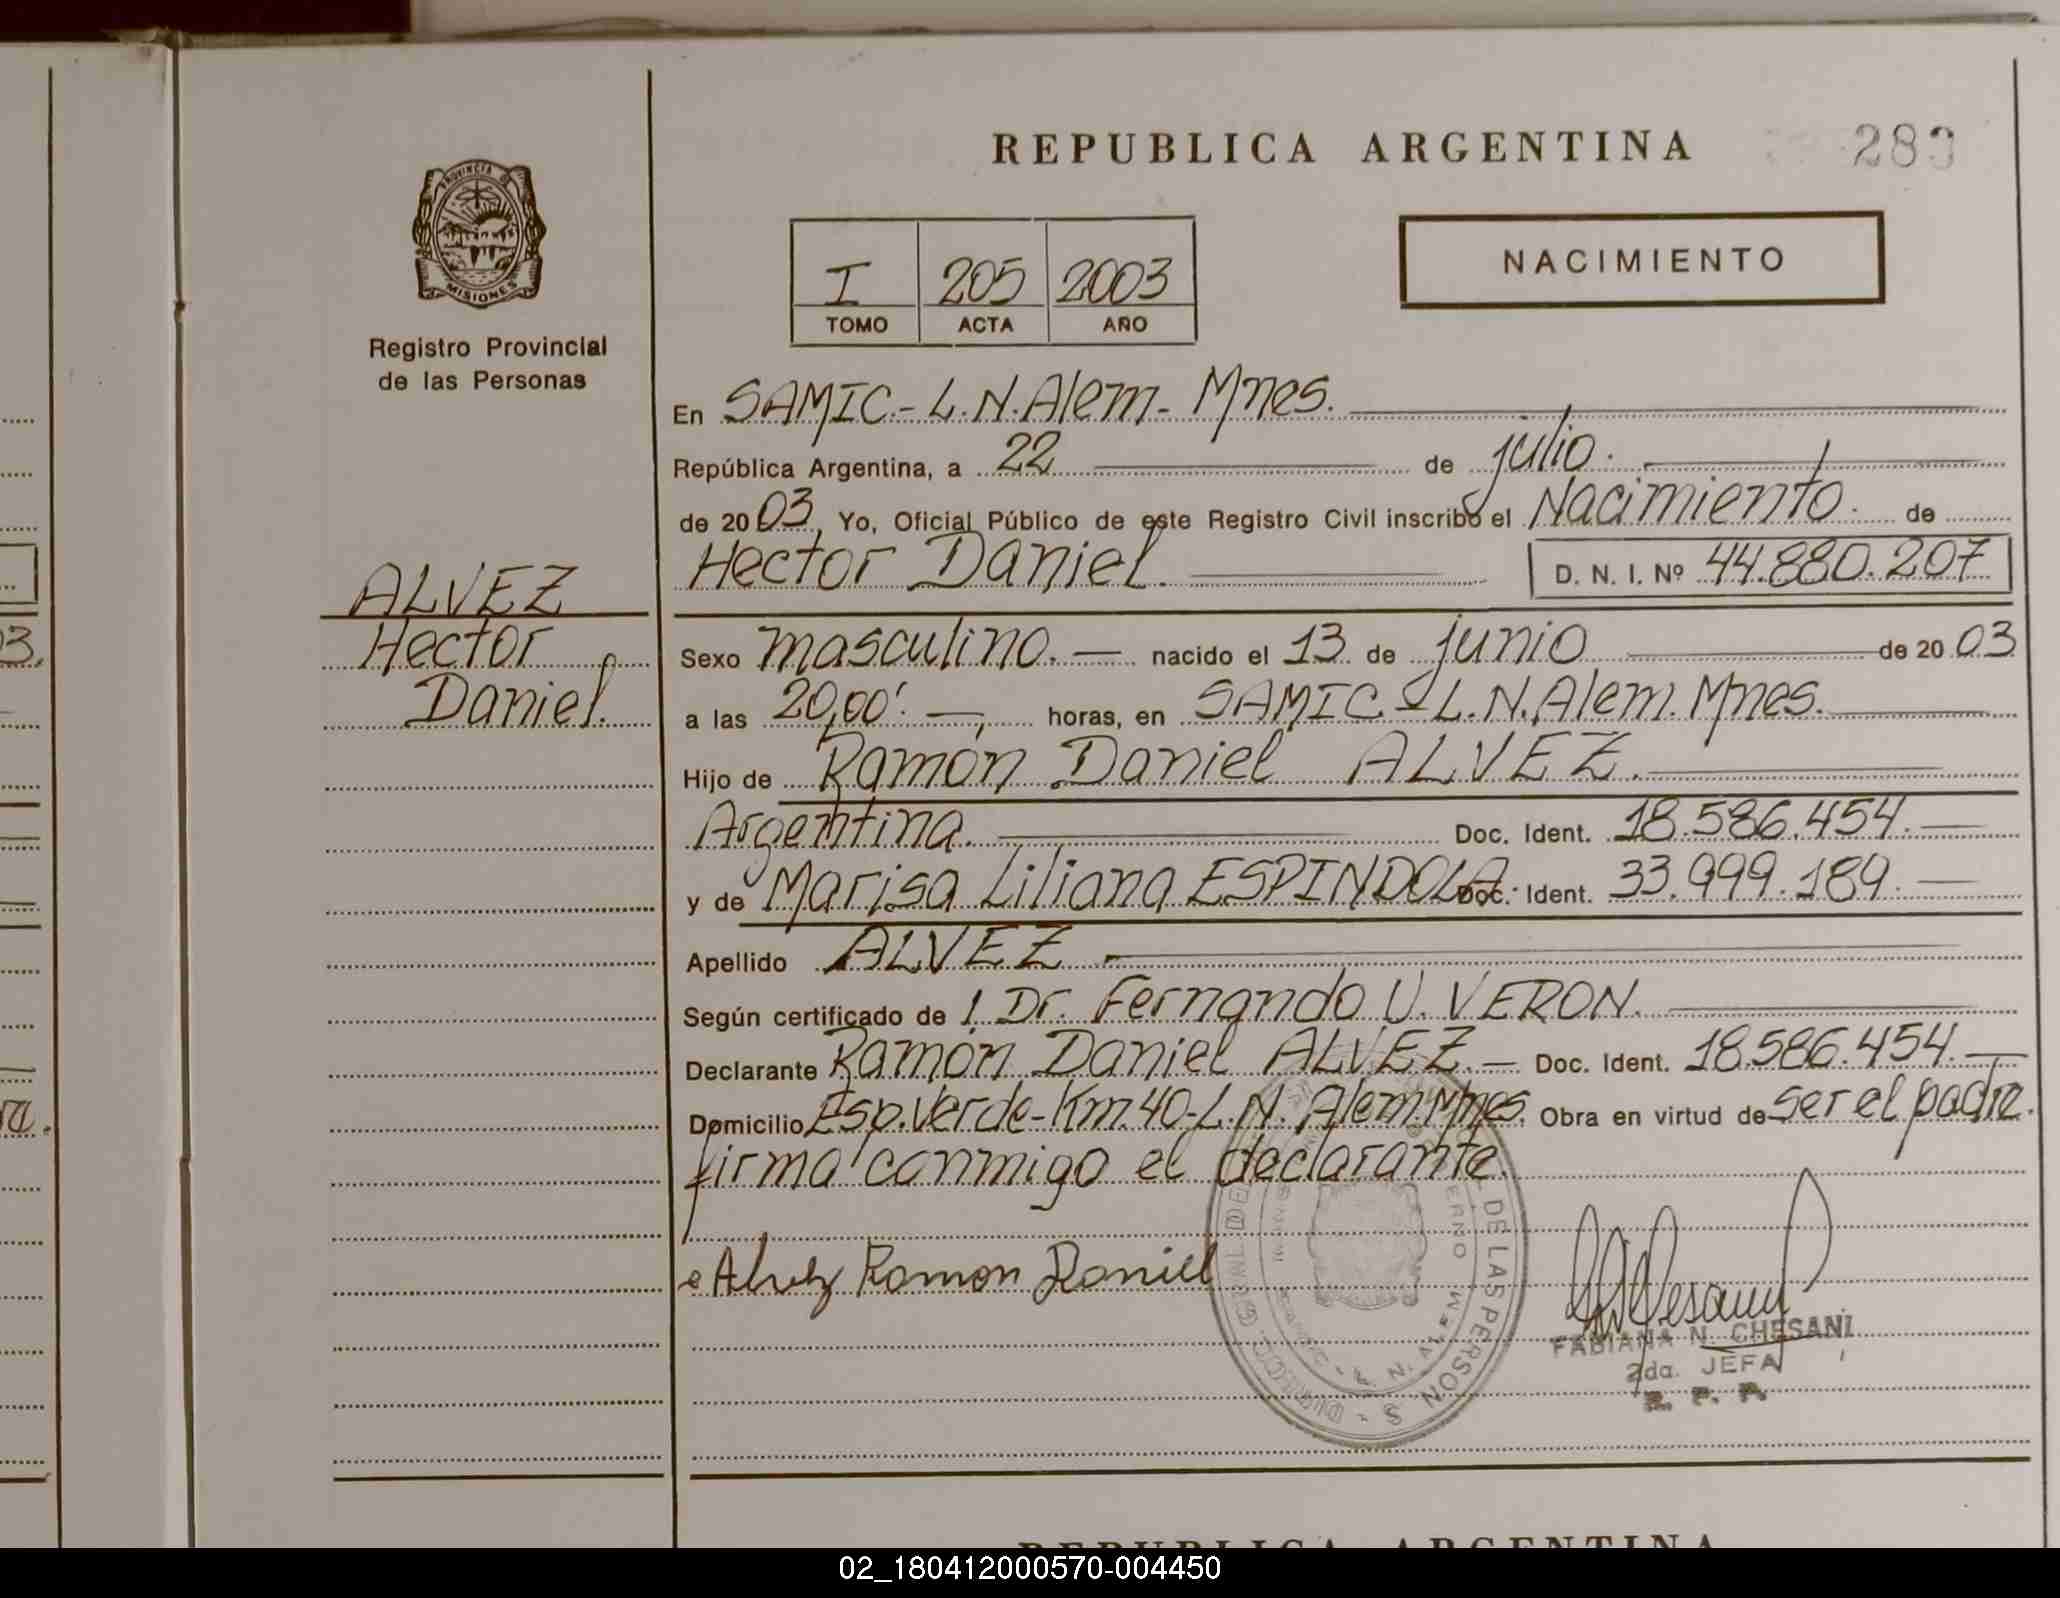 REPUBLICA ARGENTINA
PROVINCIA DE
MISIONES
Registro Provincial
de las Personas
I 205 2003
TOMO ACTA AÑO
NACIMIENTO
En SAMIC.- L.N.Alem- Mnes.
República Argentina, a 22 de julio.
de 2003, Yo, Oficial Público de este Registro Civil inscribo el Nacimiento. de
Hector Daniel. D. N. I. Nº 44.880.207
ALVEZ
Hector
Daniel.
Sexo masculino.— nacido el 13 de junio de 2003
a las 20,00'. —, horas, en SAMIC.- L.N.Alem. Mnes.
Hijo de Ramón Daniel ALVEZ.
Argentina. Doc. Ident. 18.586.454.—
y de Marisa Liliana ESPINDOLA. Doc. Ident. 33.999.189.—
Apellido ALVEZ
Según certificado de Dr. Fernando U. VERON.
Declarante Ramón Daniel ALVEZ.— Doc. Ident. 18.586.454.—
Domicilio Esp.Verde-Km.40-L.N. Alem.Mnes. Obra en virtud de ser el padre.
firma conmigo el declarante.
Alvez Ramon Daniel
DE LAS PERSONAS
L. N. ALEM
FABIANA N. CHESANI
2da. JEFA
R. P. P.
REPUBLICA ARGENTINA
02_180412000570-004450